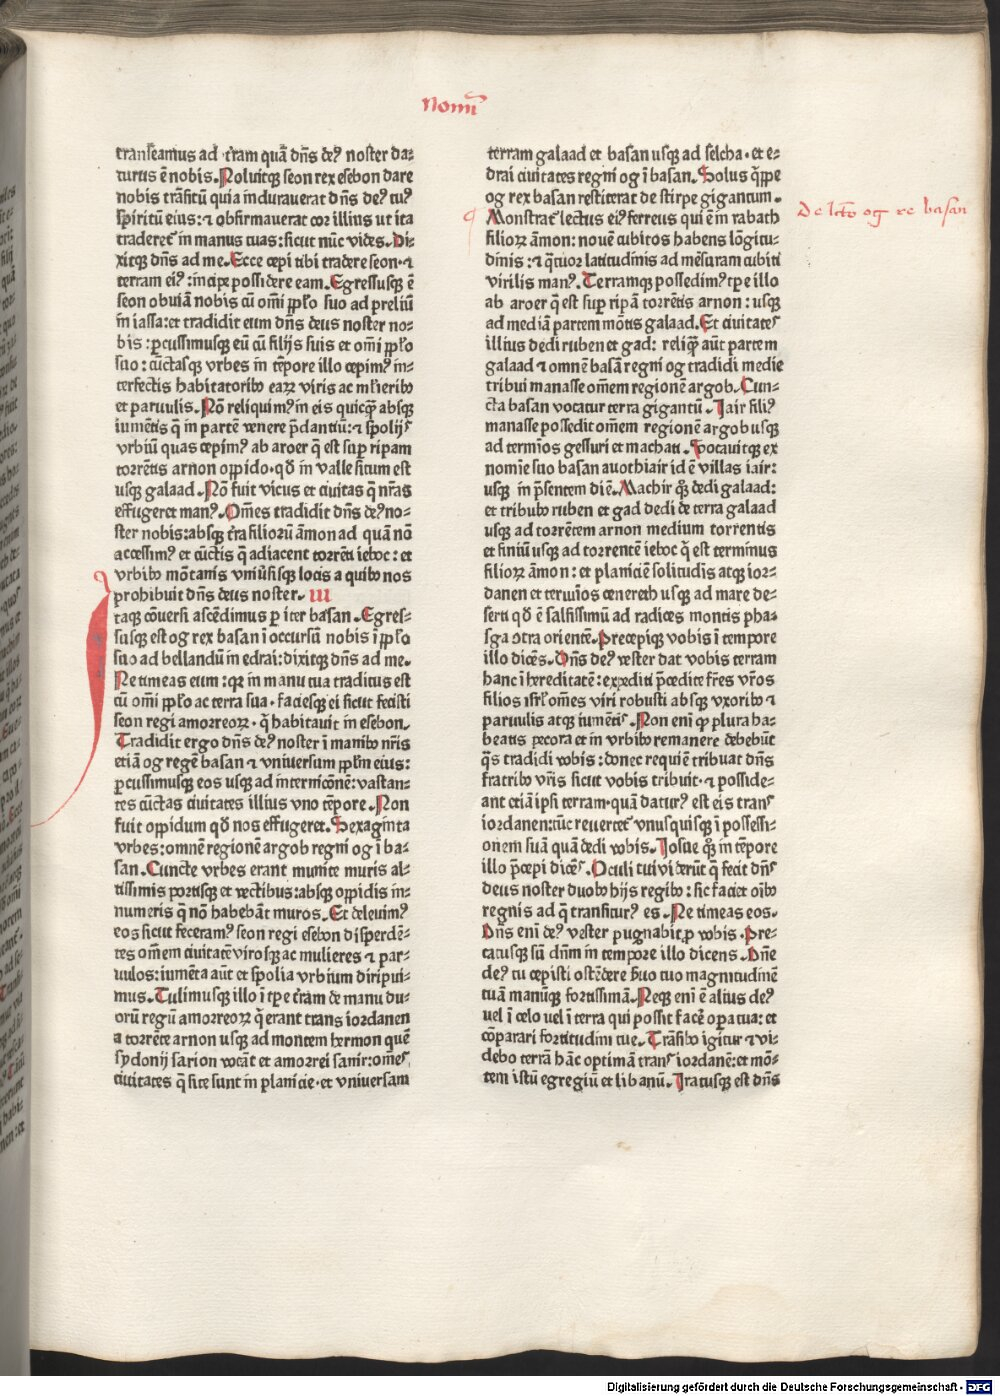 Nom̄
transeamus ad t̄ram quā dn̄s deꝰ noster da⸗
turus ē nobis. Noluitqꝫ seon rex esebon dare
nobis trāsitū quia indurauerat dn̄s deꝰ tuꝰ
spiritū eius: ⁊ obfirmauerat cor illius ut ita
traderet᷑ in manus tuas: sicut nūc vides. Di⸗
xitqꝫ dn̄s ad me. Ecce cepi tibi tradere seon. ⁊
terram eiꝰ: incipe possidere eam. Egressusqꝫ ē
seon obuiā nobis cū om̄i pp̄lo suo ad preliū
in iassa: et tradidit eum dn̄s deus noster no⸗
bis: ꝑcussimusqꝫ eū cū filijs suis et om̄i pp̄lo
suo: cūctasqꝫ vrbes in tēpore illo cepimꝰ in⸗
terfectis habitatoribꝰ eaꝝ viris ac mlieribꝰ
et paruulis. Nō reliquimꝰ in eis quicqꝫ̄ absqꝫ
iumētis q̄ in partē venere p̄dantiū: ⁊ spolijs
vrbiū quas cepimꝰ ab aroer q̄ est suꝑ ripam
torrētis arnon oppido. qd̄ in valle situm est
usqꝫ galaad. Nō fuit vicus et ciuitas q̄ nr̄as
effugeret manꝰ. Om̄es tradidit dn̄s deꝰ no⸗
ster nobis: absqꝫ t̄ra filiorū āmon ad quā nō
accessimꝰ et cūctis q̄ adiacent torrēti ieboc: et
vrbibꝰ mōtanis vniūsisqꝫ locis a quibꝰ nos
prohibuit dn̄s deus noster. III
taqꝫ cōuersi ascēdimus ꝑ iter basan. Egres⸗
susqꝫ est og rex basan ī occursū nobis ī pp̄lo
suo ad bellandū in edrai: dixitqꝫ dn̄s ad me.
Ne timeas eum: qꝛ in manu tua traditus est
cū om̄i pp̄lo ac terra sua. faciesqꝫ ei sicut fecisti
seon regi amorreoꝝ. q̄ habitauit in esebon.
Tradidit ergo dn̄s deꝰ noster ī manibꝰ nr̄is
etiā og regē basan ⁊ vniuersum pp̄lm eius:
ꝑcussimusqꝫ eos usqꝫ ad internicōnē: vastan⸗
tes cūctas ciuitates illius vno tēpore. Non
fuit oppidum qd̄ nos effugeret. Sexaginta
vrbes: omnē regionē argob regni og ī ba⸗
san. Cuncte vrbes erant munite muris al⸗
tissimis portisqꝫ et vectibus: absqꝫ oppidis in⸗
numeris q̄ nō habebāt muros. Et deleuimꝰ
eos sicut feceramꝰ seon regi esebon disperdē⸗
tes om̄em ciuitatē virosqꝫ ac mulieres ⁊ par⸗
uulos: iumēta aūt et spolia vrbium diripui⸗
mus. Tulimusqꝫ illo ī tꝑe t̄ram de manu du⸗
orū regū amorreoꝝ q̄ erant trans iordanen
a torrēte arnon usqꝫ ad montem hermon quē
sydonij sarion vocāt et amorrei sanir: om̄es
ciuitates q̄ site sunt in planicie. et vniuersam
terram galaad et basan usqꝫ ad selcha. et e⸗
drai ciuitates regni og ī basan. Solus q̄ppe
og rex basan restiterat de stirpe gigantum.
Monstrat᷑ lectus eiꝰ ferreus qui ē in rabath
filioꝝ āmon: nouē cubitos habens lōgitu⸗
dinis: ⁊ q̄tuor latitudinis ad mēsuram cubiti
virilis manꝰ. Terramqꝫ possedimꝰ tꝑe illo
ab aroer q̄ est suꝑ ripā torrētis arnon: usqꝫ
ad mediā partem mōtis galaad. Et ciuitates
illius dedi ruben et gad: reliq̄ aūt partem
galaad ⁊ omnē basā regni og tradidi medie
tribui manasse om̄em regionē argob. Cun⸗
cta basan vocatur terra gigantū. Jair filiꝰ
manasse possedit om̄em regionē argob usqꝫ
ad termīos gessuri et machati. Vocauitqꝫ ex
nomīe suo basan auothiair id ē villas iair:
usqꝫ in p̄sentem diē. Machir qꝫ̄ dedi galaad:
et tribubꝰ ruben et gad dedi de terra galaad
usqꝫ ad torrētem arnon medium torrentis
et finiū usqꝫ ad torrentē ieboc q̄ est terminus
filioꝝ āmon: et planiciē solitudīs atqꝫ ior⸗
danen et termīos cenereth usqꝫ ad mare de⸗
serti qd̄ ē salsissimū ad radices montis pha⸗
sga ɔtra orientē. Precepiqꝫ vobis ī tempore
illo dicēs. Dn̄s deꝰ vester dat vobis terram
hanc ī hereditatē: expediti p̄cedite fr̄es vr̄os
filios isrl̄ om̄es viri robusti absqꝫ vxoribꝰ ⁊
paruulis atqꝫ iumētis. Non eni ꝙ plura ha⸗
beatis pecora et in vrbibꝰ remanere debebūt
q̄s tradidi vobis: donec requiē tribuat dn̄s
fratribꝰ vr̄is sicut vobis tribuit. ⁊ posside⸗
ant etiā ipsi terram. quā daturꝰ est eis trans
iordanen: tūc reuertet᷑ vnusquisqꝫ ī possessi⸗
onem suā quā dedi vobis. Josue qꝫ̄ in tēpore
illo p̄cepi dicēs. Oculi tui viderūt q̄ fecit dn̄s
deus noster duobꝰ hijs regibꝰ: sic faciet oībꝰ
regnis ad q̄ transiturꝰ es. Ne timeas eos.
Dn̄s eni deꝰ vester pugnabit ꝑ vobis. Pre⸗
catusqꝫ sū dn̄m in tempore illo dicens. Dn̄e
deꝰ tu cepisti ostēdere ꝓuo tuo magnitudinē
tuā manūqꝫ fortissimā. Neqꝫ eni ē alius deꝰ
uel ī celo uel ī terra qui possit facē opa tua: et
cōparari fortitudini tue. Trāsibo igitur ⁊ vi⸗
debo terrā hāc optimā trans iordanē: et mō⸗
tem istū egregiū et libanū. Iratusqꝫ est dn̄s
De lcto og re basan
Digitalisierung gefördert durch die Deutsche Forschungsgemeinschaft - DFG